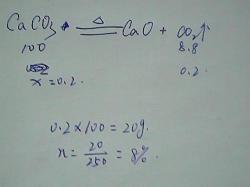 CaCO₃ =△= CaO + CO₂↑
100 8.8
x=0.2 0.2
0.2×100=20g.
n=20/250=8%